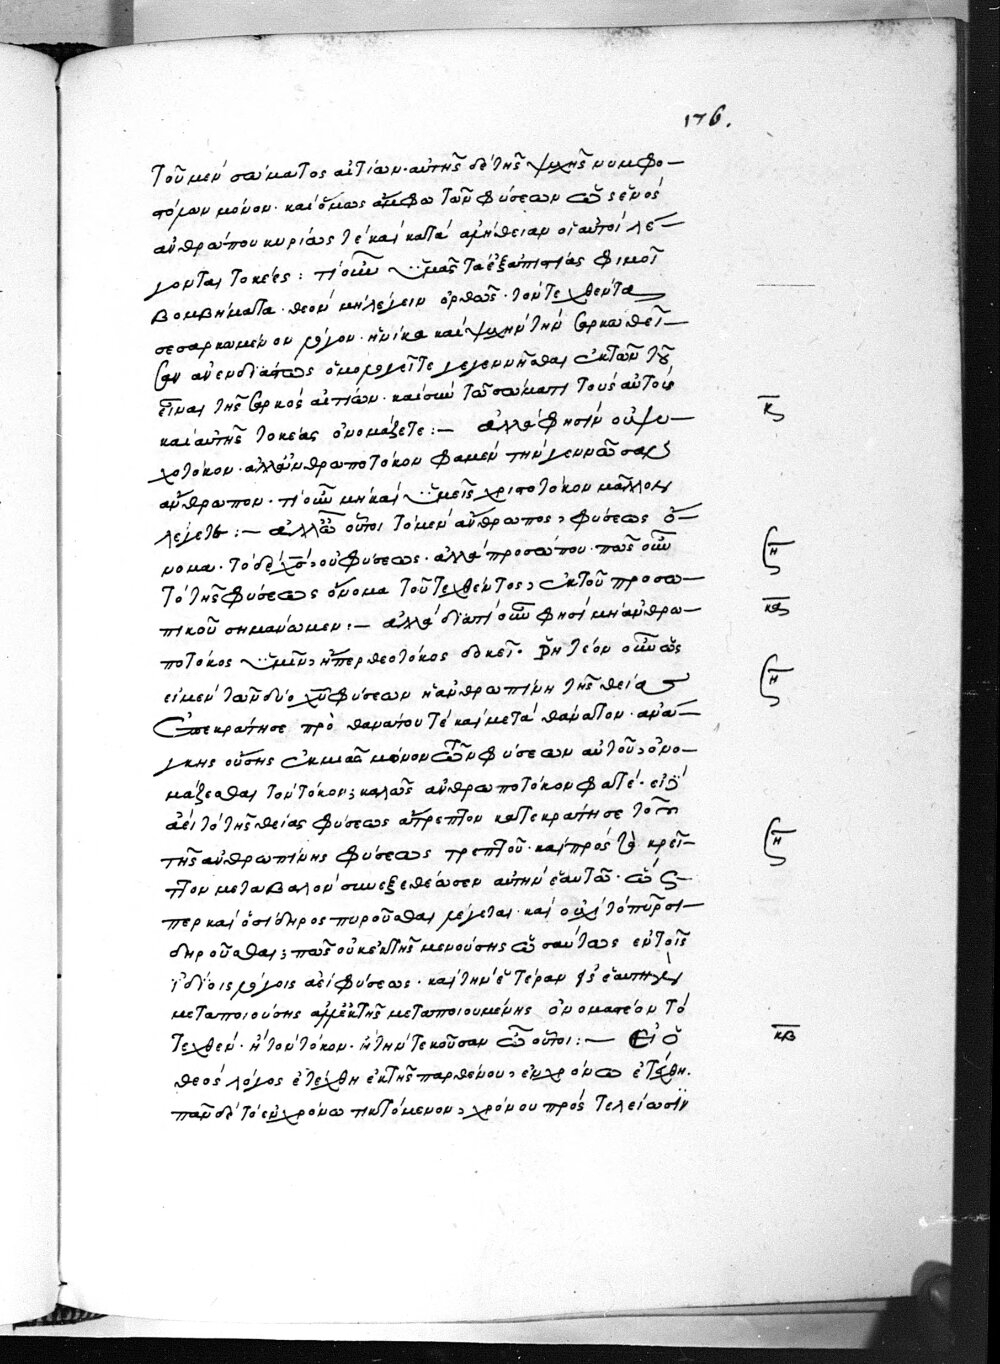 176.
τοῦ μὲν σώματος αἰτίων· αὐτῆς δὲ τῆς ψυχῆς νυμφο-
στόλων μόνον· καὶ ὅμως ἄμφω τῶν φύσεων ὡς ἑνὸς
ἀνθρώπου κυρίως τὲ καὶ κατὰ ἀλήθειαν οἱ αὐτοὶ λέ-
γονται τοκέες: τί οὖν ὑμᾶς τὰ ἐξαπίσης
βομβήματα· θεὸν μὴ λέγειν ὀρθῶς· τὸν τεχθέντα
σεσαρκωμένον λόγον· ἡνίκα καὶ ψυχὴν τὴν σαρκωθεῖ-
σαν ἀνενδιάστως ὁμολογεῖτε γεγεννῆσθαι ἐκ τῶν τοῦ
εἶναι τῆς σαρκὸς αἰτίων· καὶ σὺν τῷ σώματι τοὺς αὐτοὺς
καὶ αὐτῆς τοκέας ὀνομάζετε:— ἀλλὰ φησὶν οὐ ψυ-
κ
χοτόκον· ἀλλ' ἀνθρωποτόκον φαμὲν τὴν γεννῶσαν
ἄνθρωπον· τί οὖν μὴ καὶ ὑμεῖς χριστοτόκον μᾶλλον
λέγετε:— ἀλλ' ὦ οὗτοι τὸ μὲν ἄνθρωπος, φύσεως ὄ-
νομα· τὸ δὲ χς, οὐ φύσεως· ἀλλὰ προσώπου· πῶς οὖν
τὸ τῆς φύσεως ὄνομα τοῦ τεχθέντος, ἐκ τοῦ προσω-
πικοῦ σημάνωμεν:— ἀλλὰ διατί οὖν φησὶ μὴ ἀνθρω-
κα
ποτόκος ὑμῖν, ἤπερ θεοτόκος δοκεῖ· ῥητέον οὖν ὡς
εἰ μὲν τῶν δύο χυ φύσεων ἡ ἀνθρωπίνη τῆς θείας
ἐπεκράτησε πρὸ θανάτου τὲ καὶ μετὰ θάνατον· ἀνάγ-
κης οὔσης ἐκ μιᾶς μόνον τῶν φύσεων αὐτοῦ, ὀνο-
μάζεσθαι τὸν τόκον; καλῶς ἀνθρωποτόκον φατέ· εἰ δὲ
ἀεὶ τὸ τῆς θείας φύσεως ἄτρεπτον κατεκράτησε τοῦ
τῆς ἀνθρωπίνης φύσεως τρεπτοῦ· καὶ πρὸς τὸ κρεῖτ-
τον μεταβαλὸν συνεξεθέωσεν αὐτὴν ἑαυτῷ· ὥς-
περ καὶ ὁ σίδηρος πυροῦσθαι λέγεται· καὶ οὐχὶ τὸ πῦρ σι-
δηροῦσθαι; πῶς οὐκ ἐκ τῆς μενούσης ὡσαύτως ἐν τοῖς
ἰδίοις λόγοις ἀεὶ φύσεως· καὶ τὴν ἑτέραν εἰς ἑαυτὴν
μεταποιούσης ἀλλ' ἐκ τῆς μεταποιουμένης ὀνοματέον τὸ
τεχθέν· ἢ τὸν τόκον· ἢ τὴν τεκοῦσαν ὦ οὗτοι:— Εἰ ὁ
κβ
θεὸς λόγος ἐτέχθη ἐκ τῆς παρθένου, ἐν χρόνῳ ἐτέχθη.
πᾶν δὲ τὸ ἐν χρόνῳ τικτόμενον, χρόνου πρὸς τελείωσιν